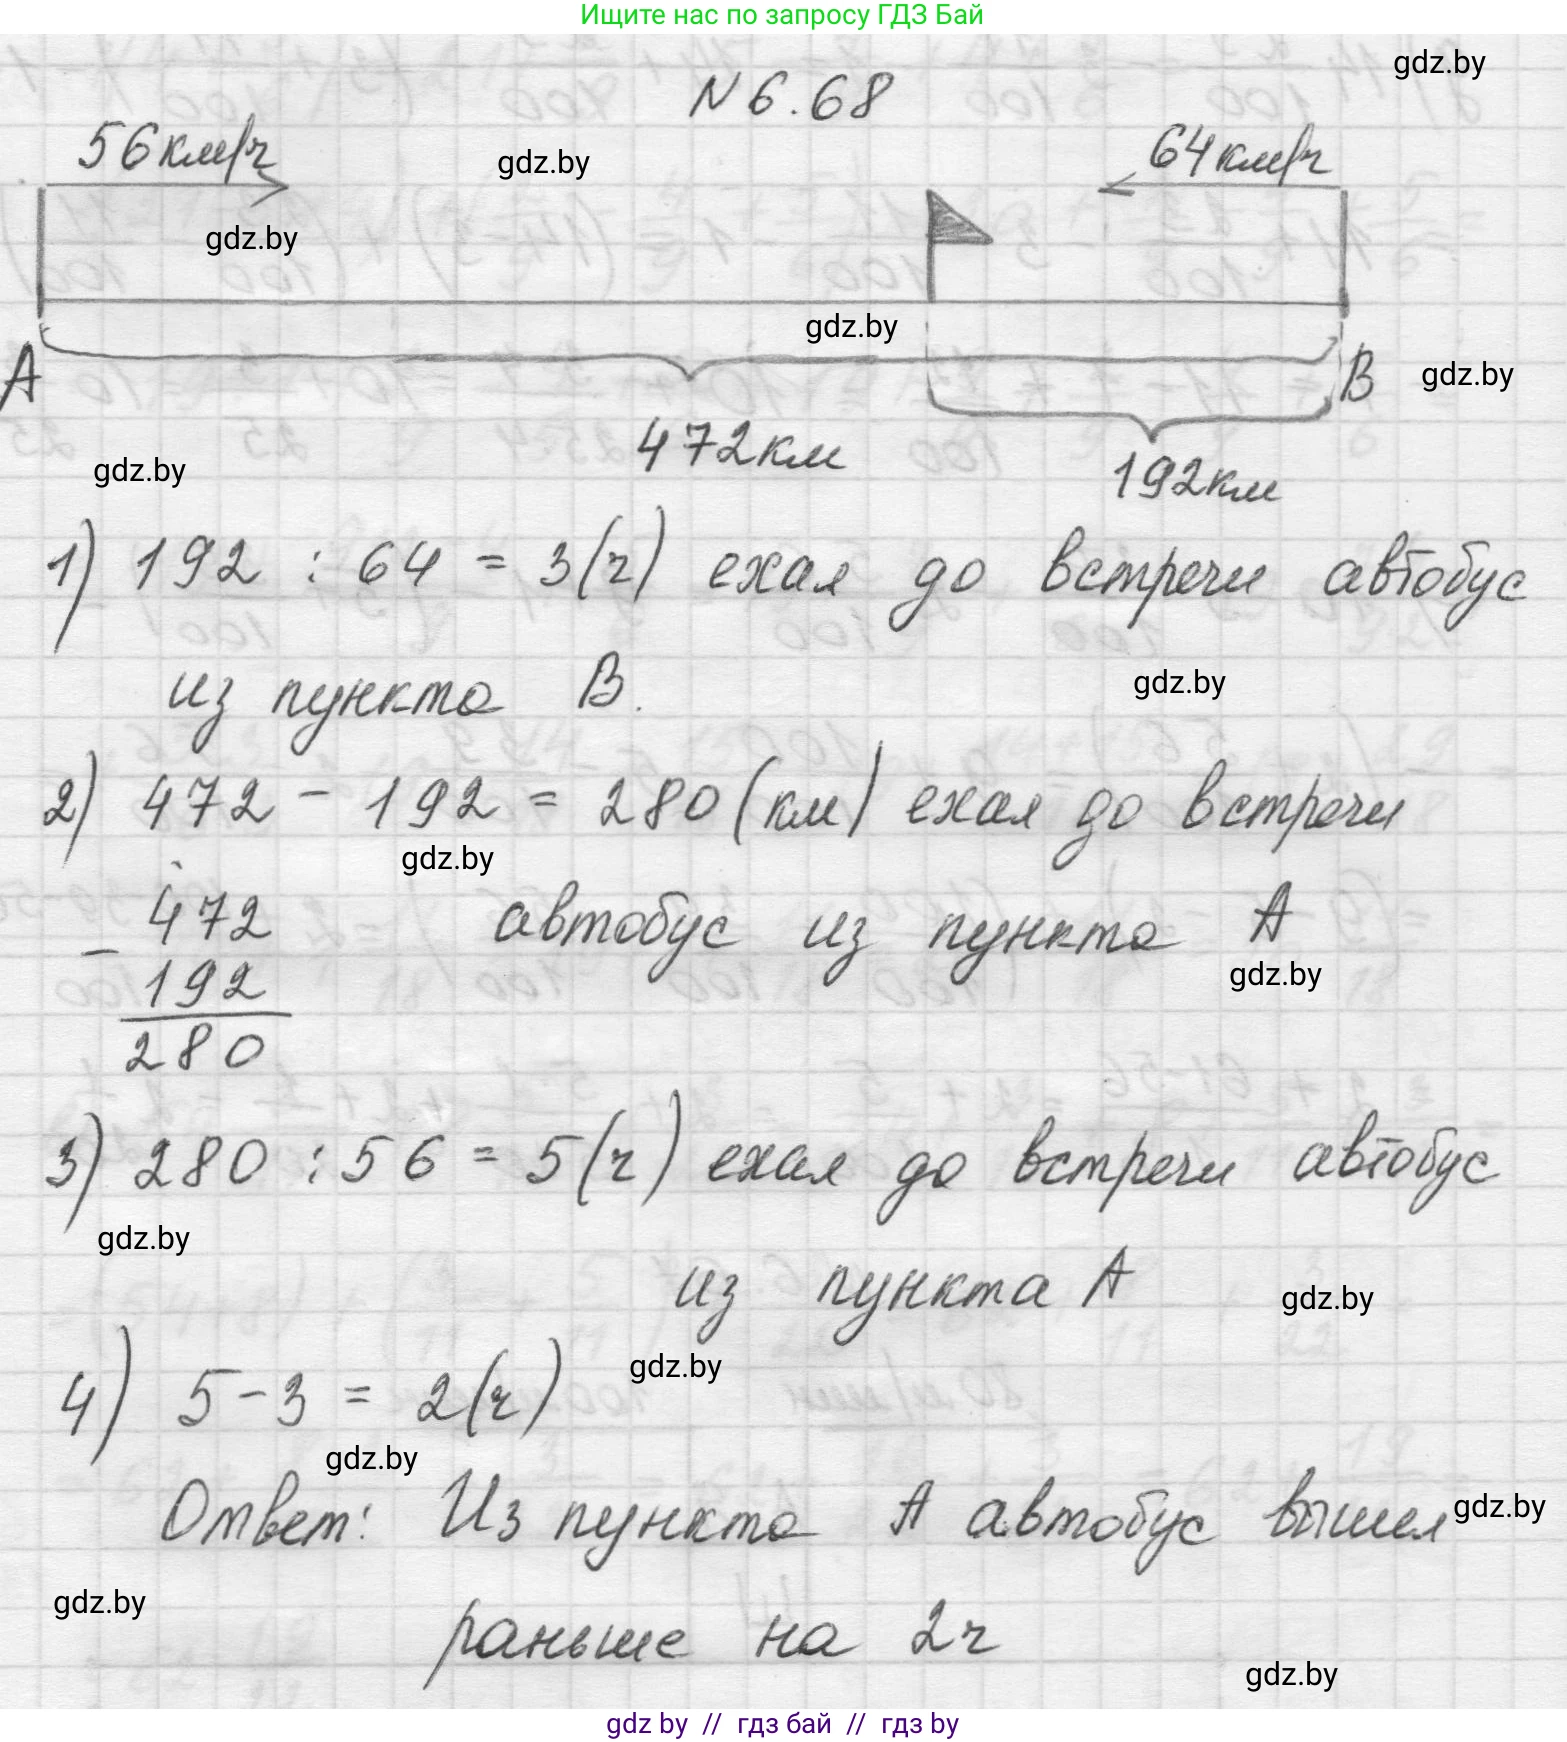 Ищите нас по запросу ГДЗ Бай
gdz.by
N 6.68
56км/ч
gdz.by
64км/ч
gdz.by
gdz.by
A
B
gdz.by
472км
gdz.by
192км
1) 192 : 64 = 3(ч) ехал до встречи автобус
из пункта B.
gdz.by
2) 472 - 192 = 280(км) ехал до встречи
gdz.by
- 472
автобус из пункта A
192
gdz.by
280
3) 280 : 56 = 5(ч) ехал до встречи автобус
gdz.by
из пункта A
gdz.by
gdz.by
4) 5-3 = 2(ч)
gdz.by
Ответ: Из пункта A автобус вышел
gdz.by
gdz.by
раньше на 2ч
gdz.by
gdz by // гдз бай // гдз by